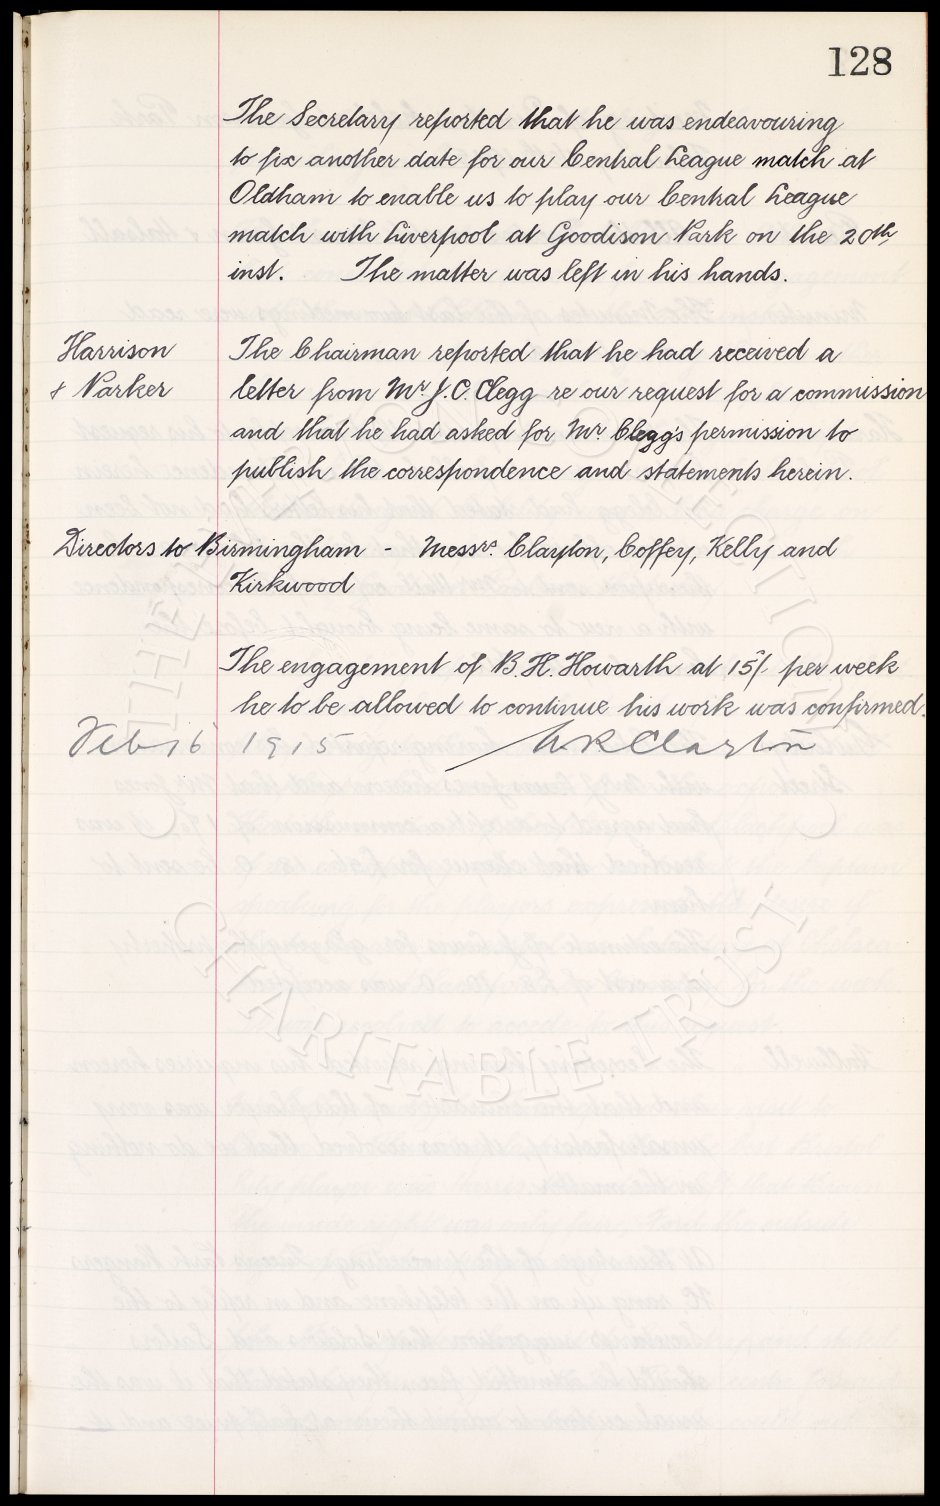 128
The Secretary reported that he was endeavouring
to fix another date for our Central League match at
Oldham to enable us to play our Central League
match with Liverpool at Goodison Park on the 20th
inst. The matter was left in his hands.
Harrison
& Parker
The Chairman reported that he had received a
letter from Mr J. C. Clegg re our request for a commission
and that he had asked for Mr. Clegg's permission to
publish the correspondence and statements herein.
Directors to Birmingham - Messrs. Clayton, Coffey, Kelly and
Kirkwood
The engagement of B. H. Howarth at 15/- per week
he to be allowed to continue his work was confirmed.
Feb 16 1915 W R Clayton
THE EVERTON COLLECTION
CHARITABLE TRUST